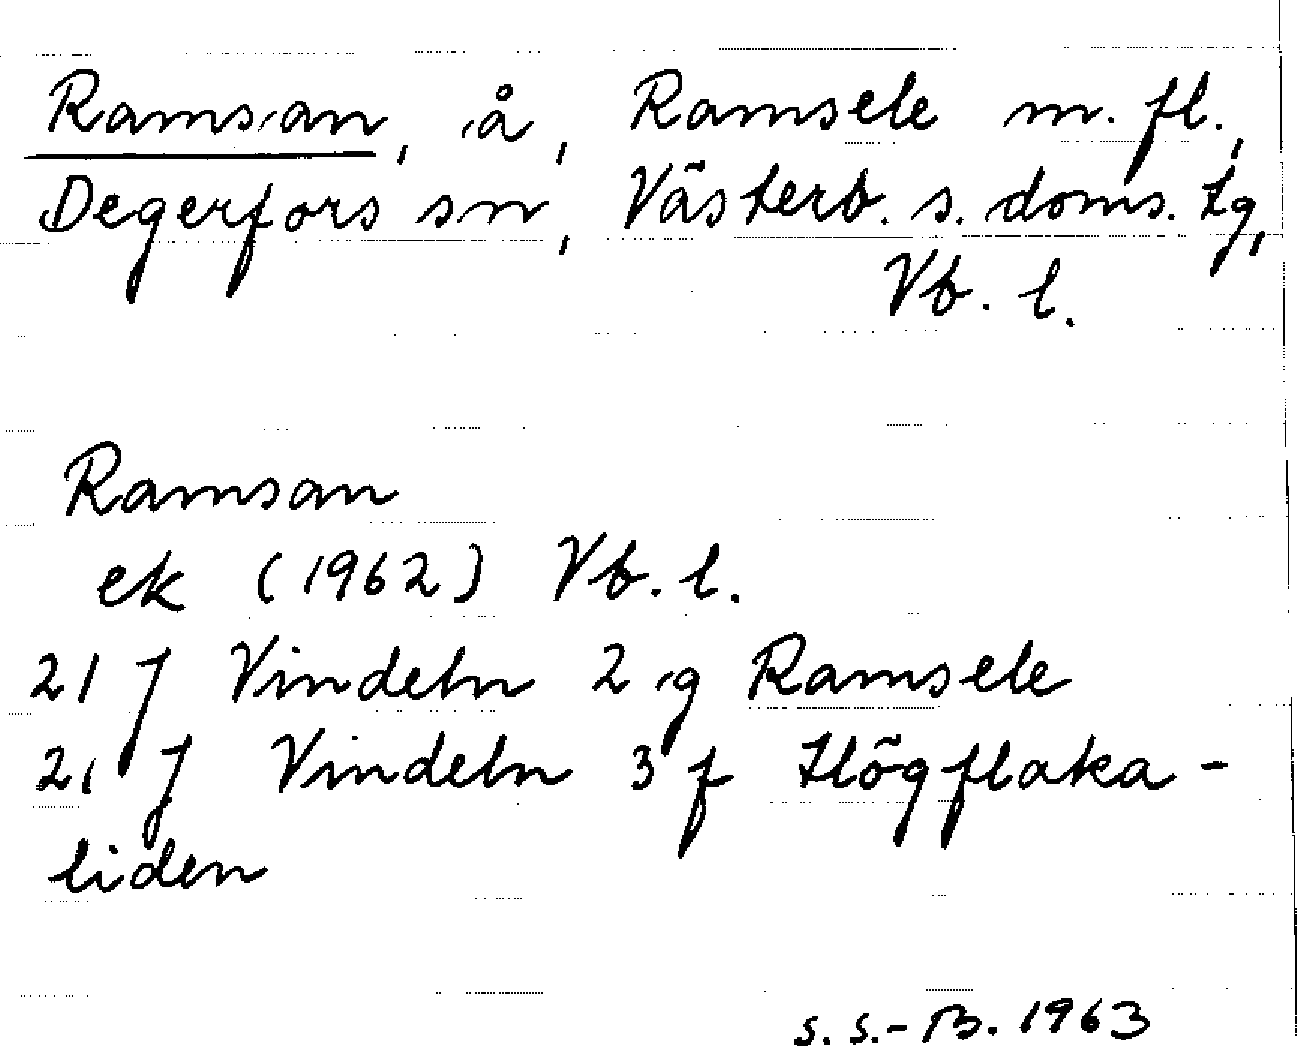 Ramsan, å, Ramsele m. fl.,
Degerfors sn, Västerb. s. doms. tg,
Vb. l.
Ramsan
ek (1962) Vb. l.
21 J Vindeln 2 g Ramsele
21 J Vindeln 3 f Högflaka-
liden
S. S.-B. 1963